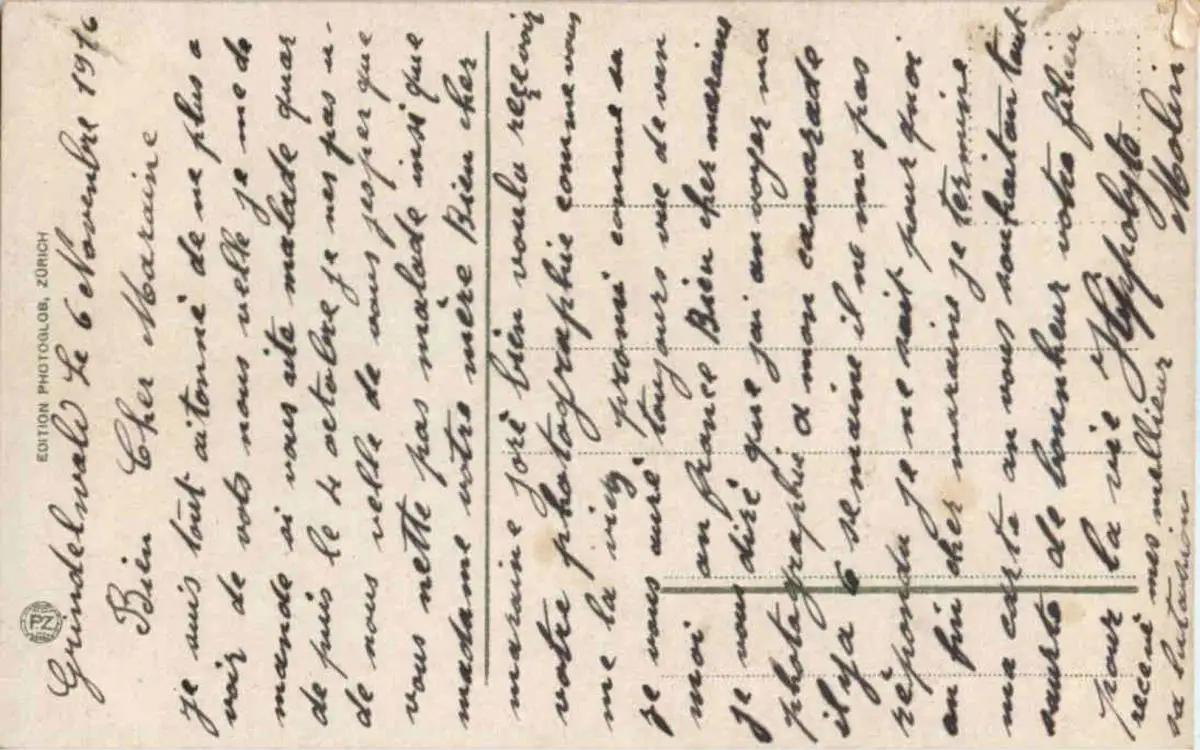 EDITION PHOTOGLOB, ZÜRICH
PZ
Grindelwald Le 6 Novenbre 1916
Bien Cher Maraine
je suis tout aitonné de ne plus a
voir de vots nous velle je me de
mande si vous aite malade quar
de puis le 4 octobre je nes pas u
de nous velle de vous jesper que
vous nette pas malade insi que
madame votre mère Bien cher
maraine jorè bien voulu reçevoir
votre photographie comme vous
me la viez promi comme sa
je vous auré toujours vue devan
moi an france Bien cher maraine
je vous diré que jai anvoyer ma
photographie a mon camarade
il y a 6 semaine il ne ma pas
répondu je ne sait pour quoi
en fin cher maraine je termine
ma carte an vous souhaitan tout
saurte de bonheur votre filieu
pour la vie Hippolyte
recevé mes mellieur Molin
sa lutasion